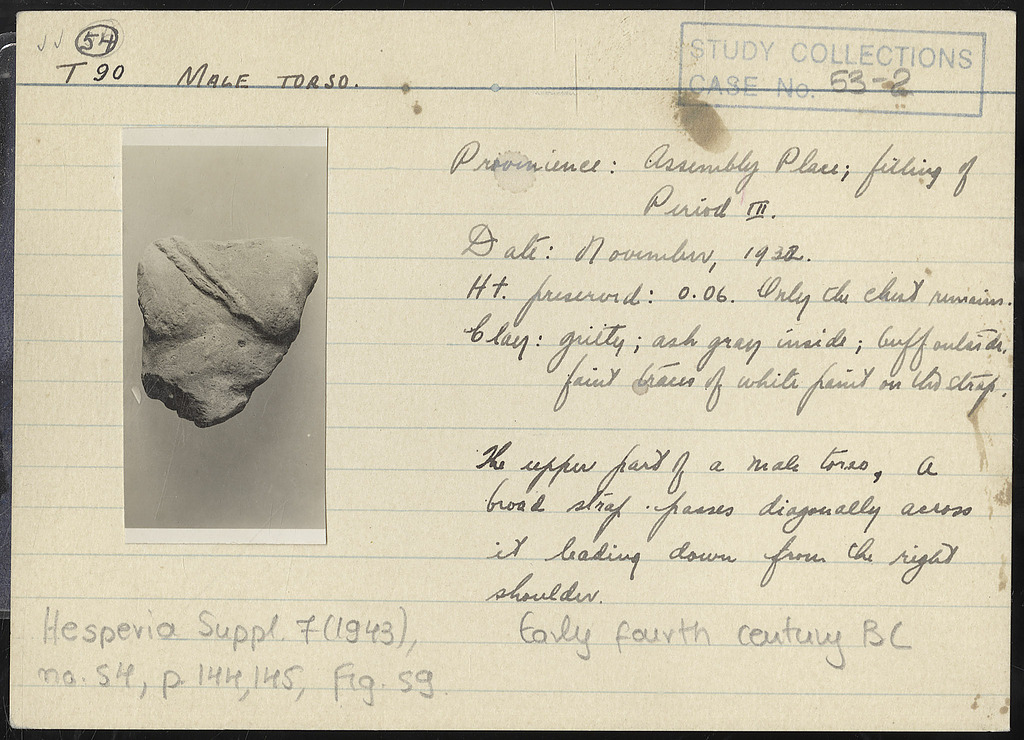 54
T 90 MALE TORSO.
STUDY COLLECTIONS
CASE No. 53-2
Provinience: Assembly Place; filling of
Period III.
Date: November, 1932.
Ht. preserved: 0.06. Only the chest remains.
Clay: gritty; ash gray inside; buff outside.
faint traces of white paint on the strap.
The upper part of a male torso, A
broad strap passes diagonally across
it leading down from the right
shoulder.
Hesperia Suppl. 7 (1943),
no. 54, p. 144,145, Fig. 59
Early fourth century BC